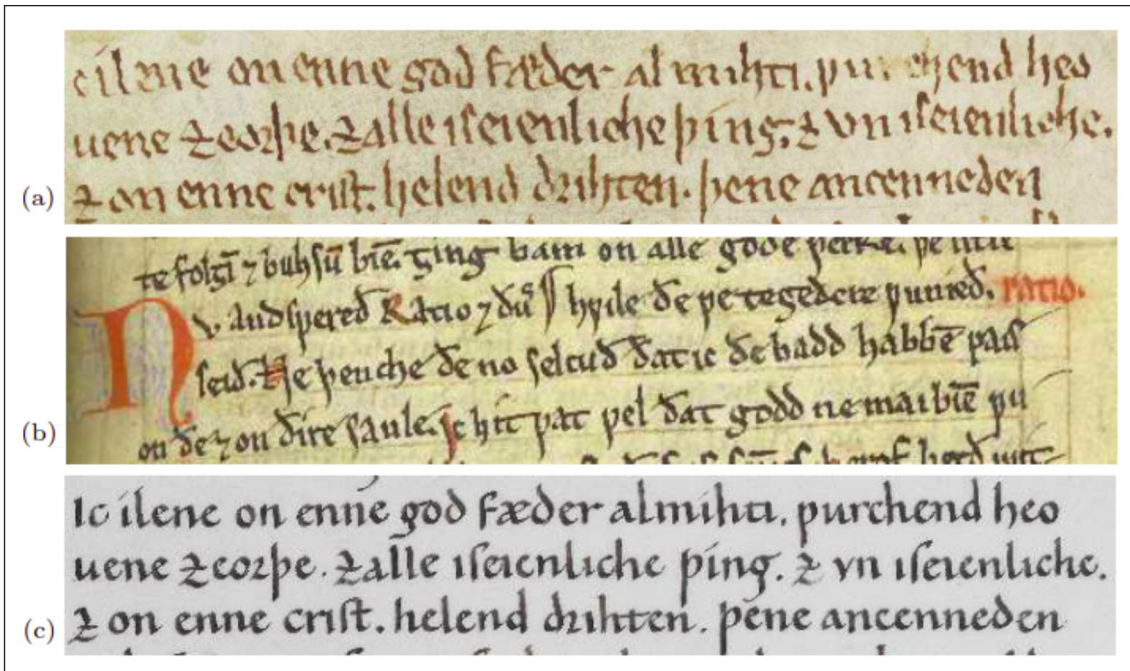 ilene on enne god fæder almihti. hend heo
uene ⁊ eoꝛþe. ⁊ alle iſeienliche þing. ⁊ vn iſeienliche.
(a) ⁊ on enne criſt. helend dꝛihten. þene ancenneden
te folgī ⁊ buhſū biē. ham on alle gode ƿerke.
N v. andſƿereð Ratio ⁊ hƿile ðe ƿe tegedere ƿunieð. ratio.
ſeið. Ne þenche ðe no ſelcuð ðat ic ðe habbē
(b) on ðe ⁊ on ðire ſaule. Ic hit ƿat ƿel ðat godd ne mai biē ƿu
Ic ilene on enne god fæder almihti. ƿurchend heo
uene ⁊ eoꝛþe. ⁊ alle iſeienliche þing. ⁊ vn iſeienliche.
(c) ⁊ on enne criſt. helend dꝛihten. þene ancenneden